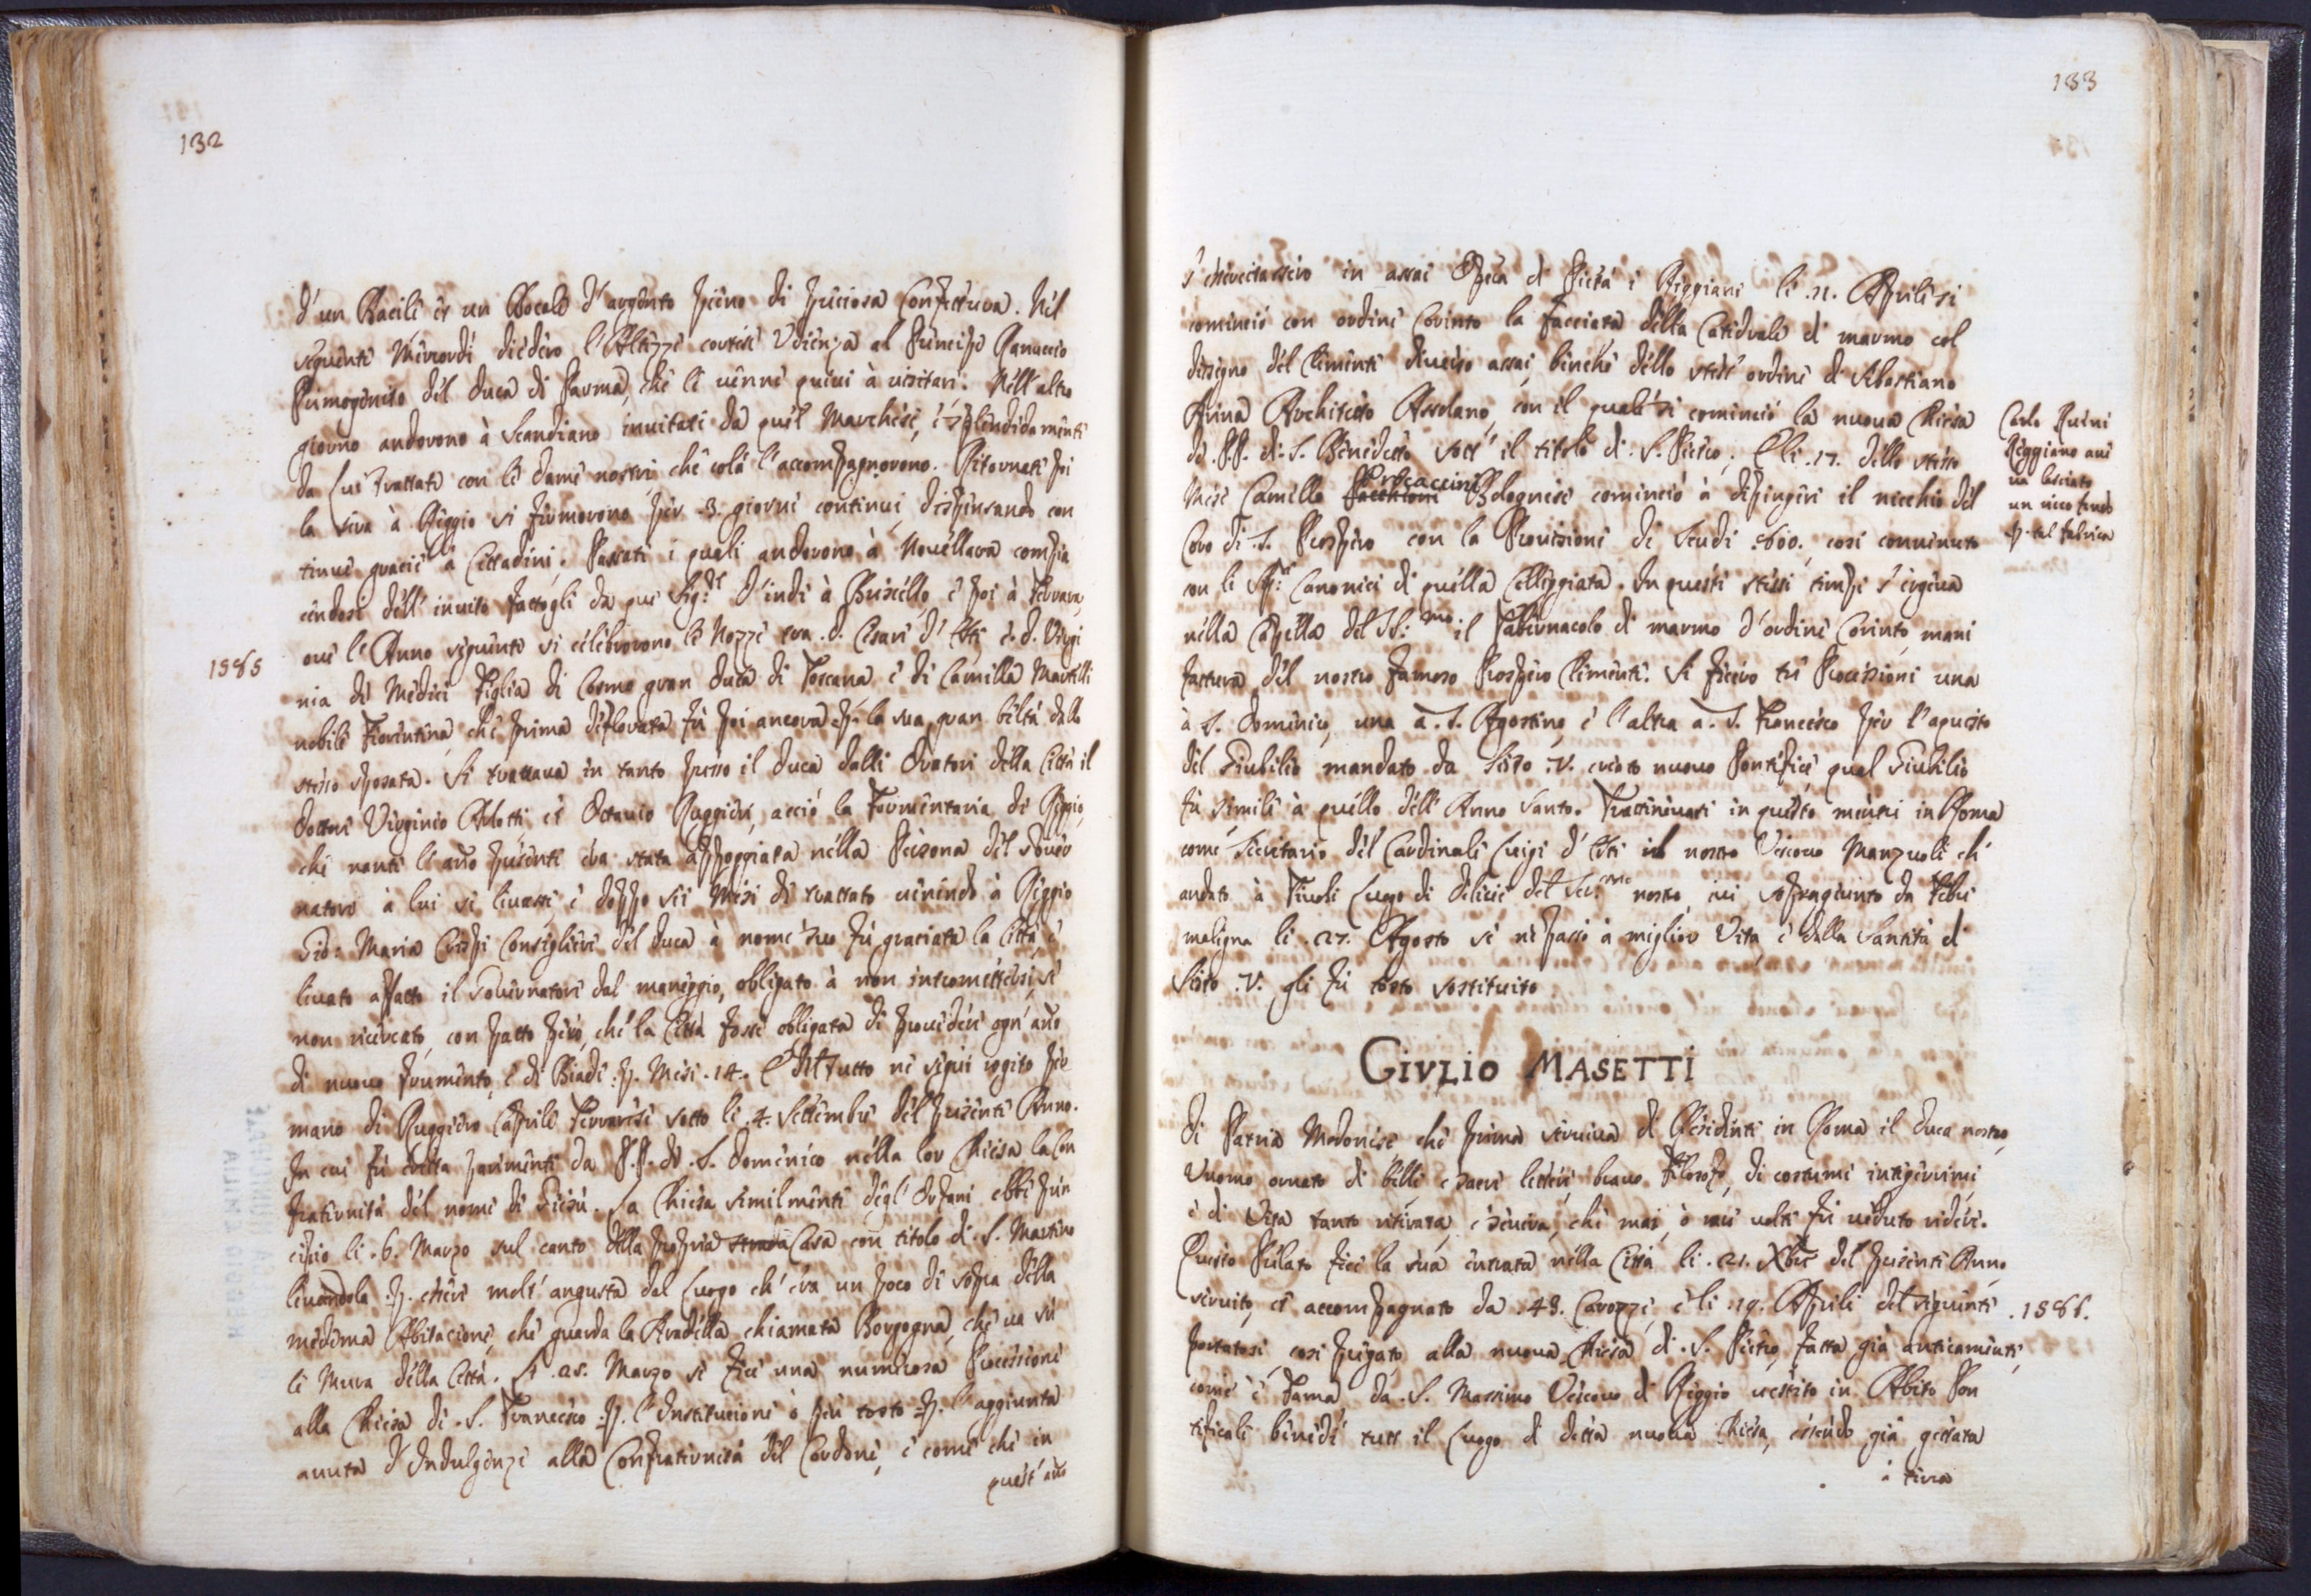 132
d'un Bacile et un Bocale d'argento pieno di preciosa Confettura. Nel
seguente Mercordi diedero l'Altezze cortese Udienza al Principe Ranuccio
Primogenito del Duca di Parma, che le venne quivi à visitare. Nell'altro
giorno andorono à Scandiano invitati da quel Marchese, e splendidamente
da lui trattati con le dame nostre, che colà l'accompagnorono. Ritornati poi
la sera à Reggio si fermorono per .3. giorni continui, dispensando con
tinue gracie à Cittadini. Passati i quali andorono à Novellara compia
cendosi dell'invito fattogli da que Sig.ri d'indi à Bresello, e poi à Ferrara,
1585
ove l'Anno seguente si celebrorono le Nozze tra .d. Cesare d'Este, e .d. Virgi
nia de Medici Figlia di Cosmo gran Duca di Toscana e di Camilla Martelli
nobile Fiorentina, che prima deflorata fù poi ancora p. la sua gran beltà dallo
stesso sposata. Si trattava in tanto presso il Duca dalli Oratori della Città il
Dottore Virginio Adotti, et Octavio Ruggieri, acciò la Formentaria di Reggio,
che nanti l'año presente era stata appoggiata nella Persona del Gover
natore à lui si levasse, e doppo sei Mesi di trattato venendo à Reggio
Gio: Maria Crispi Consigliere del Duca à nome suo fù graciata la Città e
levato affatto il Governatore dal maneggio, obligato à non intromettersi, se
non ricercato, con patto però, che la Città fosse obligata di provedere ogn'año
di nuovo frumento, e di Biade .p. Mesi .14. E del tutto ne seguì rogito per
mano di Ruggiero Caprile Ferrarese sotto li .4. Settembre del presente Anno.
In cui fù eretta parimente da P.P. de .S. Domenico nella lor Chiesa la Con
fraternità del nome di Giesù. La Chiesa similmente degl'Orfani ebbe prin
cipio li .6. Marzo sul canto della propria strada Casa con titolo di .S. Martino
levandola .p. essere molt'angusta dal luogo ch'era un poco di sopra della
medema Abitacione, che guarda la Stradella chiamata Borgogna, che va sù
le Mura della Città. Li .25. Marzo si fece una numerosa Processione
alla Chiesa di .S. Francesco .p. l'Institucione ò più tosto .p. l'aggiunta
avuta d'Indulgenze alla Confraternità del Cordone, e come che in
quest'año
133
s'esercitassero in assai Opera di Pietà i Reggiani li .11. Aprile si
cominciò con ordine Corinto la Facciata della Catedrale di marmo col
disegno del Clementi diverso assai, benche dello stess'ordine di Sebastiano
Architetto con il quale si cominciò la nuova Chiesa
de .PP. di .S. Benedetto sott'il titolo di .S. Pietro; E li .17. dello stesso
Mese Camillo Procaccini Bolognese cominciò à dipingere il nicchio del
Coro di .S. Prospero con la Provisione di Scudi .600. così convenuto
con li Sig.ri Canonici di quella Colleggiata. In questi stessi tempi s'ergeva
nella Capella del SS.mo il Tabernacolo di marmo d'ordine Corinto, mani
fattura del nostro famoso Prospero Clementi. Si fecero tre Processioni una
à S. Domenico, una a .S. Agostino, e l'altra a .S. Francesco per l'acquisto
del Giubileo mandato da Sisto .V. creato nuovo Pontefice qual Giubileo
fù simile à quello dell'Anno Santo. Trattenevasi in questo mentre in Roma
come Secretario del Cardinale Luigi d'Este il nostro Vescovo Manzuoli ch'
andato à Tivoli luogo di delicie del Ser.mo nostro, ivi sopragiunto da febre
maligna li .27. Agosto se ne passò à miglior Vita, e dalla Santità di
Sisto .V. gli fù tosto sostituito
Carlo
Reggiano avè
va lasciato
un
p. tal fabrica
GIVLIO MASETTI
di Patria Modonese, che prima serviva di Residente in Roma il Duca nostro,
Vuomo ornato di belle e sacre lettere, bravo Filosofo, di costumi integerrimi
e di Vita tanto ritirata, e severa, che mai, ò rare volte fù veduto ridere.
Questo Prelato fece la sua entrata nella Città li .21. Xbre del presente Anno
servito, et accompagnato da .48. Carozze, e li .19. Aprile del seguente
.1586.
portatosi, così pregato, alla nuova Chiesa di .S. Pietro, fatta già anticamente,
come è Fama da .S. Massimo Vescovo di Reggio vestito in Abito Pon
tificale benedì tutt il luogo di detta nuova Chiesa, essendo già gettata
à terra